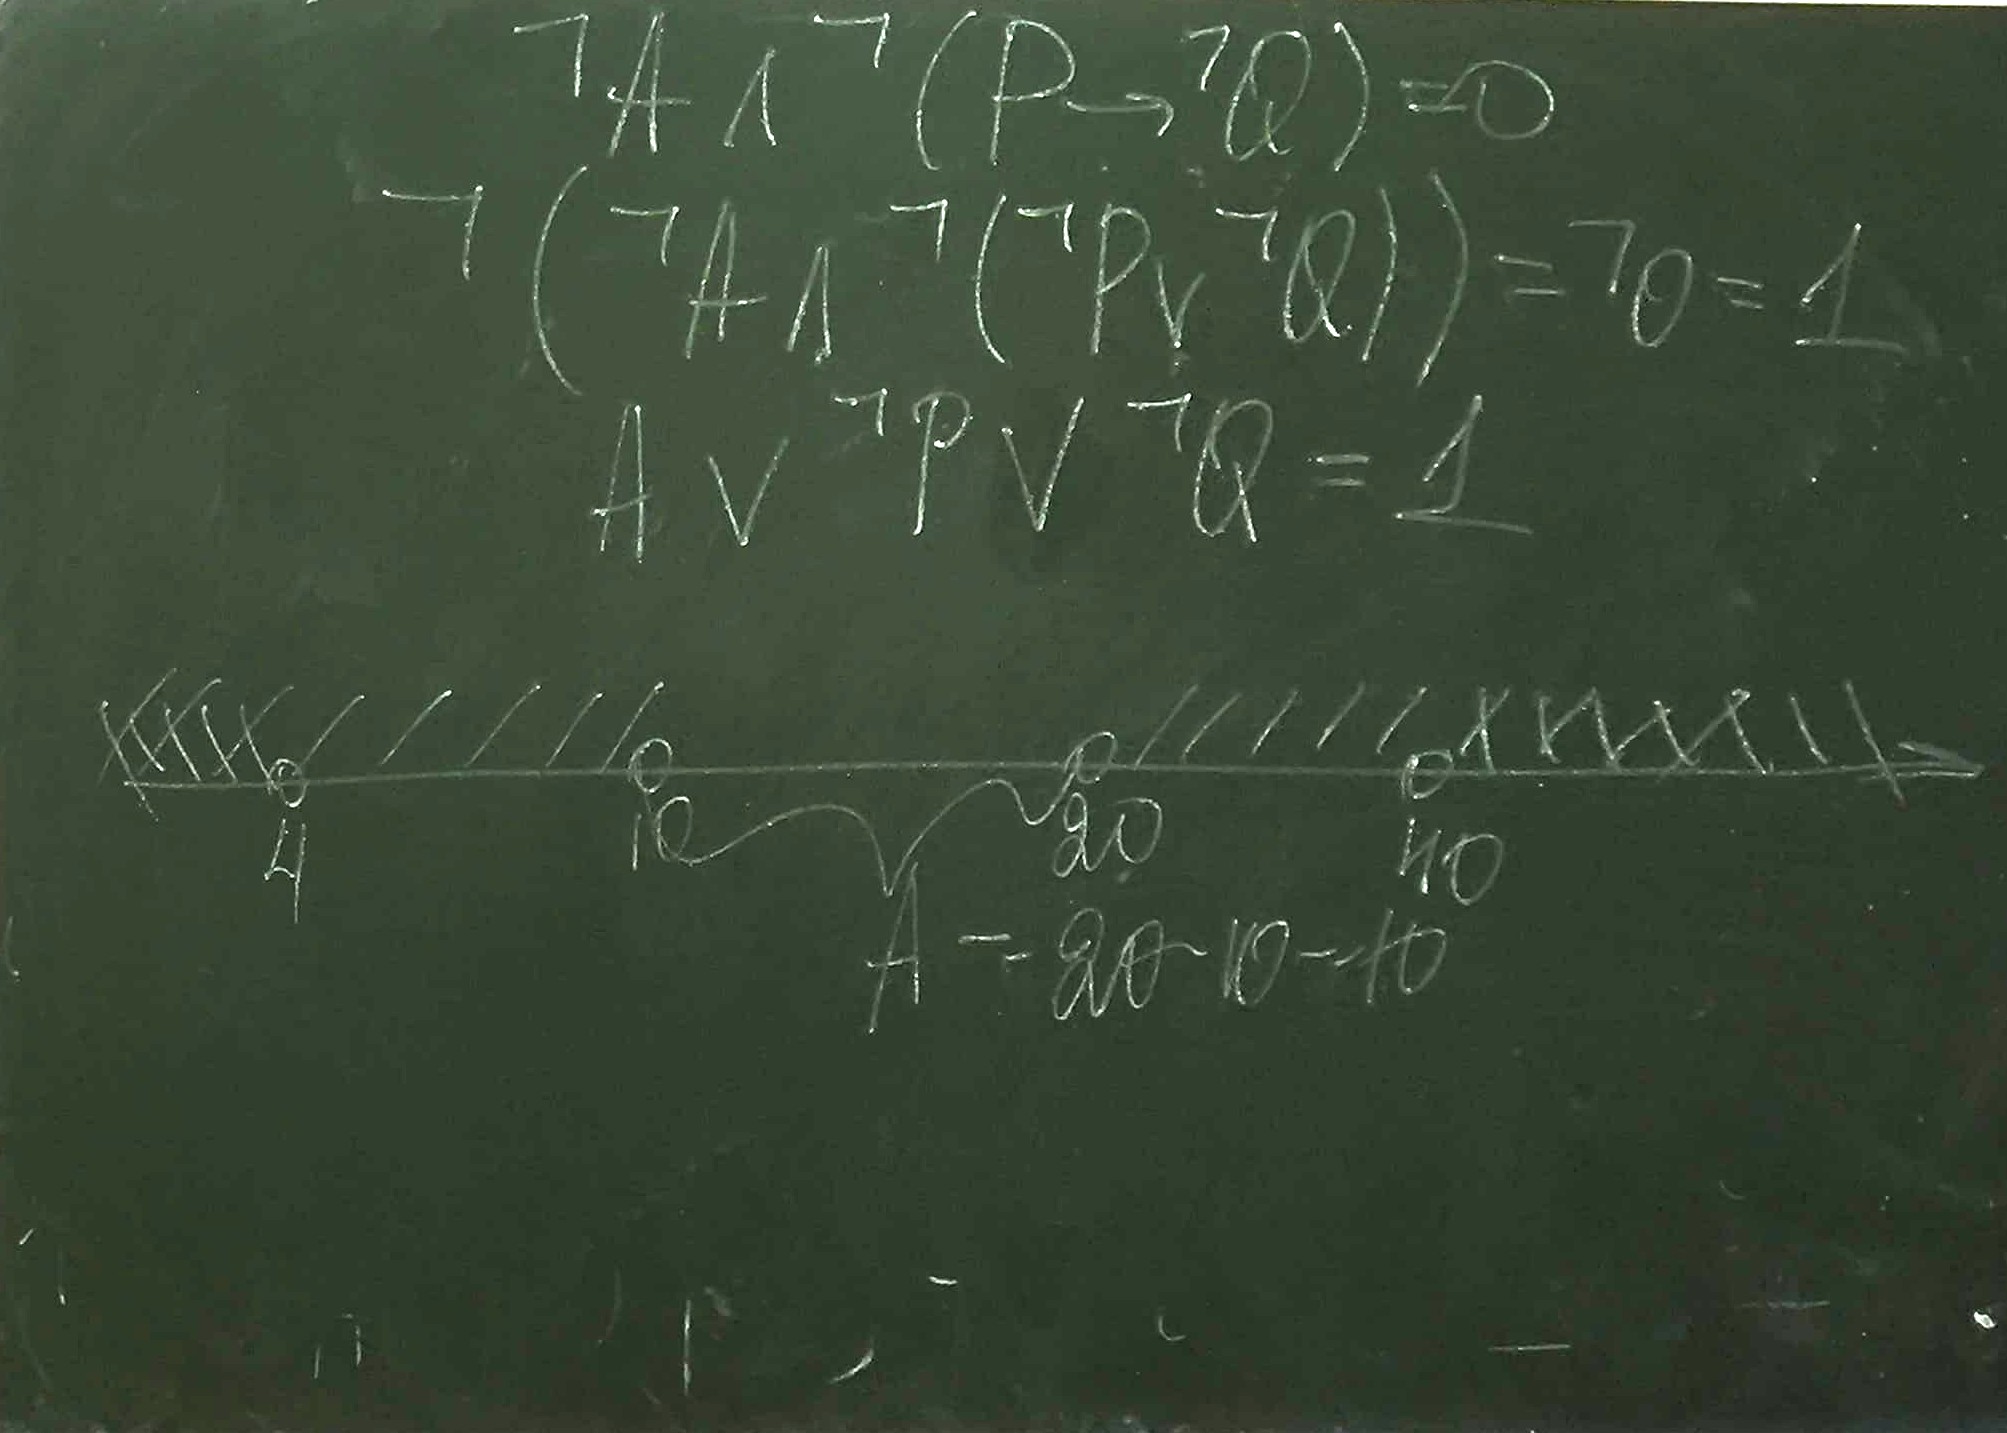 ¬A ∧ ¬(P → ¬Q) = 0
¬(¬A ∧ ¬(¬P ∨ ¬Q)) = ¬0 = 1
A ∨ ¬P ∨ ¬Q = 1
4 10 20 40
A = 20 - 10 = 10